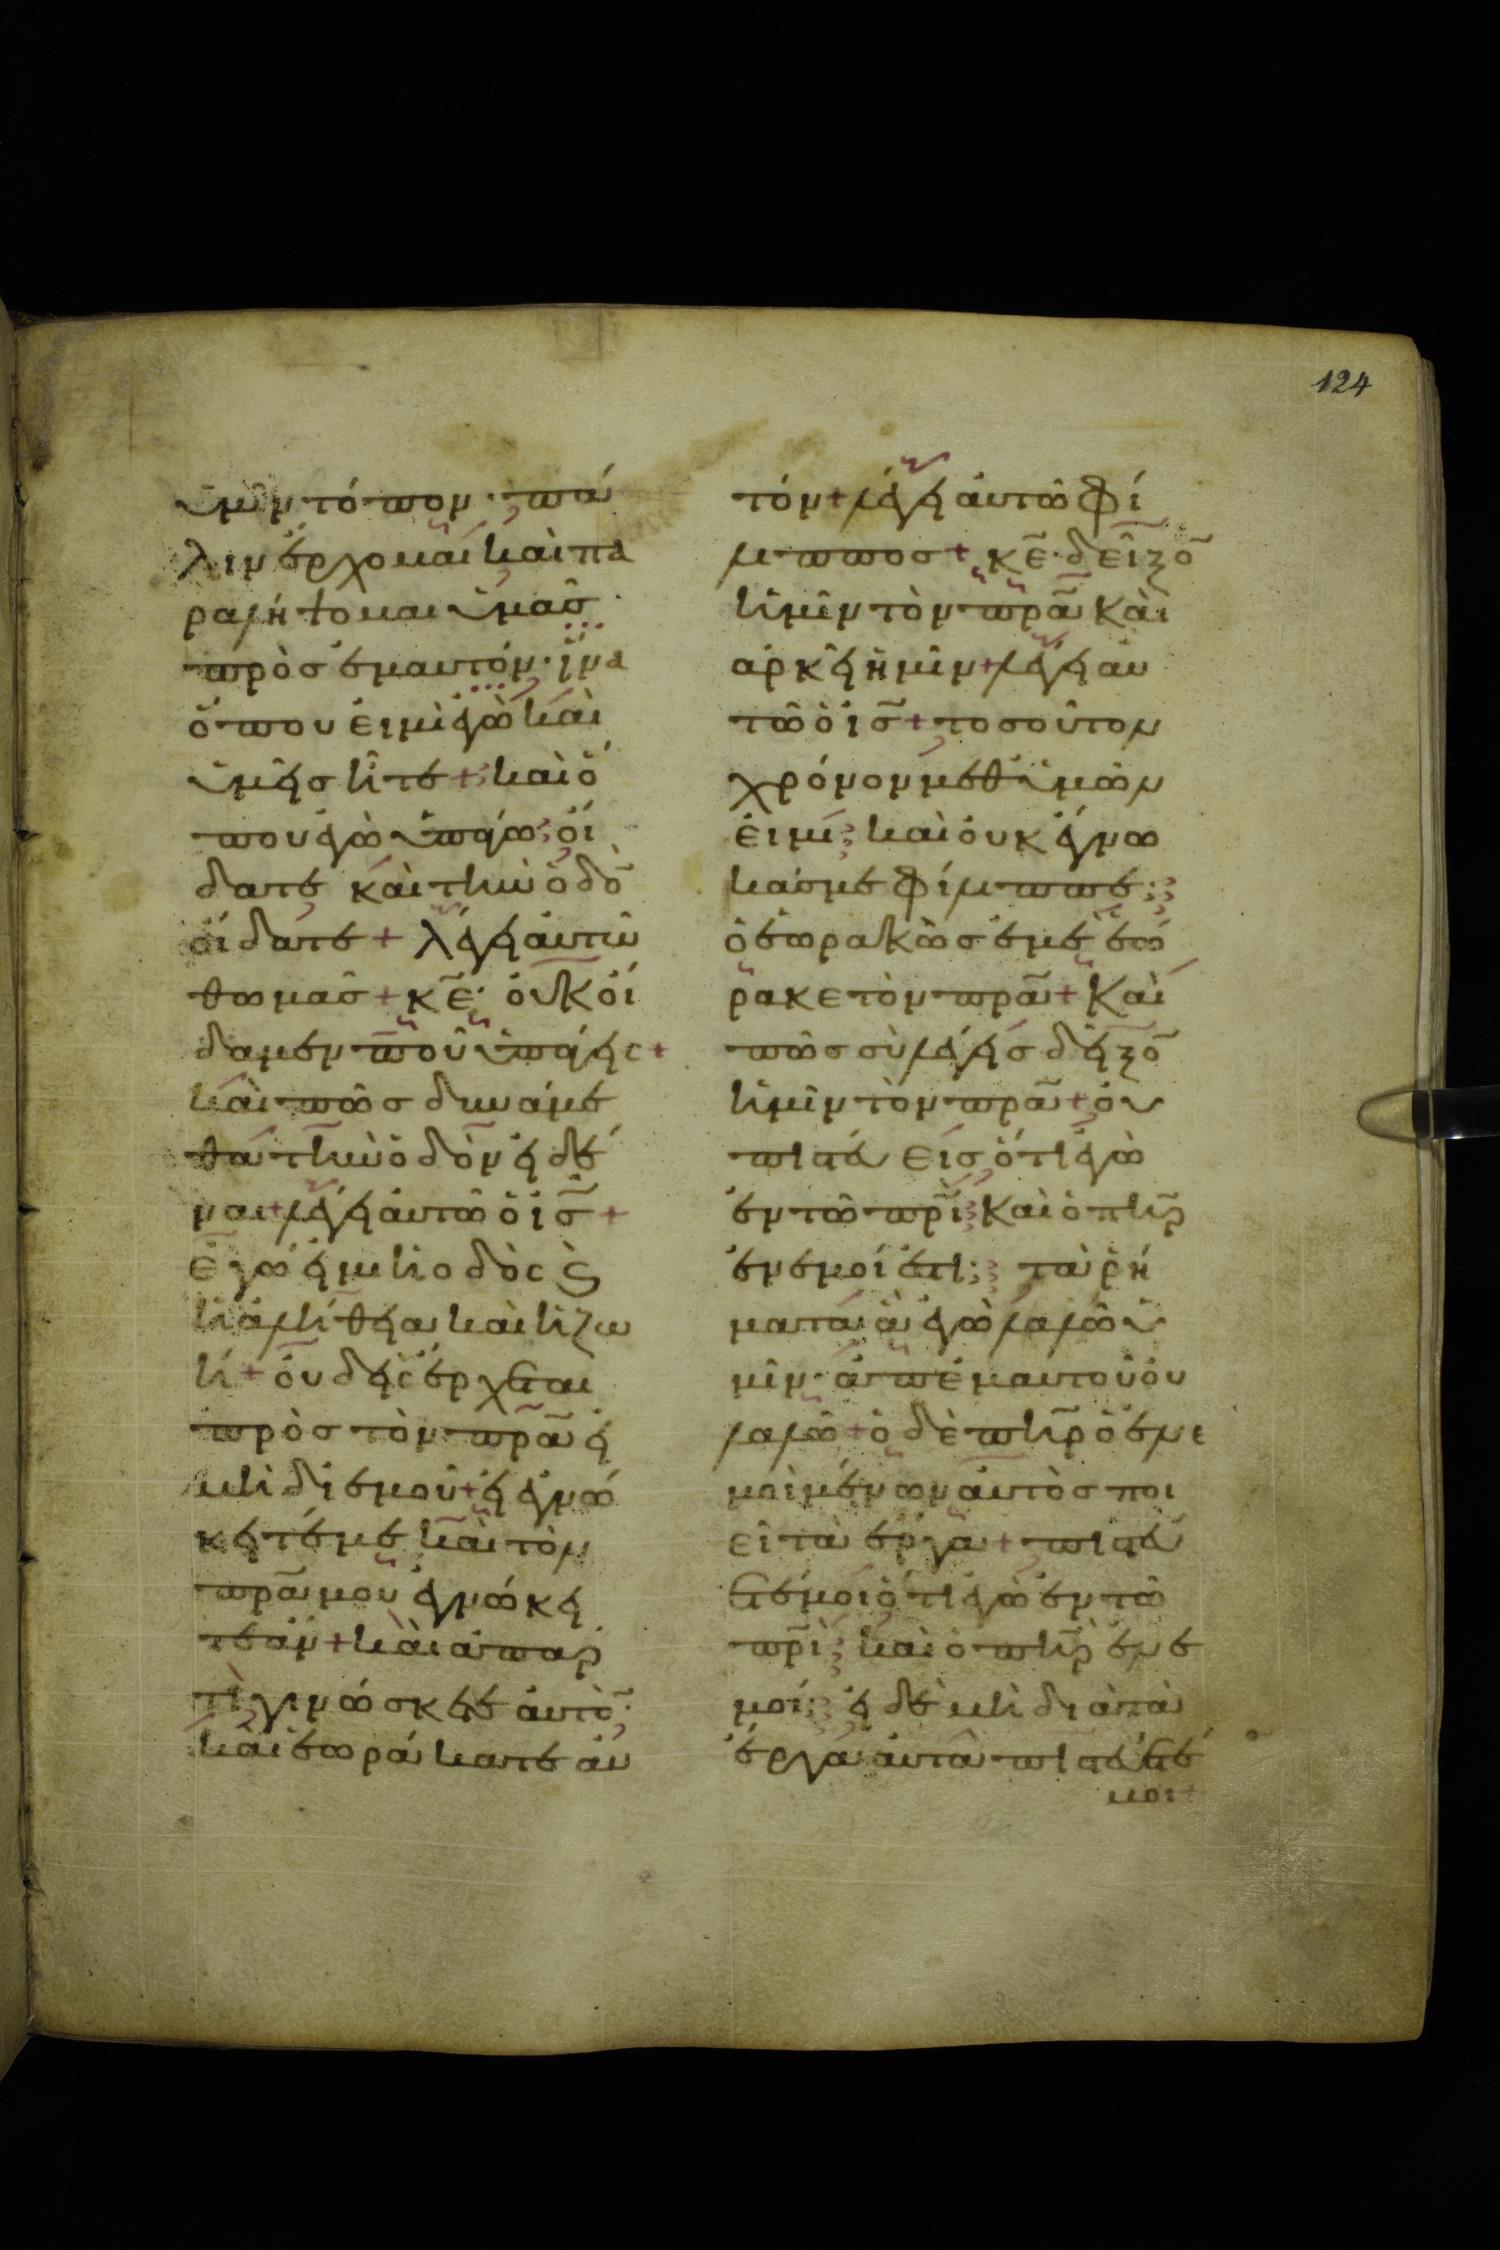 124
ὑμῖν τόπον· πά
λιν ἔρχομαι καὶ πα
ραλήψομαι ὑμᾶς
πρὸς ἐμαυτόν· ἵνα
ὅπου εἰμὶ ἐγὼ καὶ
ὑμεῖς ἦτε + καὶ ὅ
που ἐγὼ ὑπάγω οἴ
δατε καὶ τὴν ὁδὸ̅
οἴδατε + λέγει αὐτῶ
θωμᾶς + κ̅ε̅· οὐκ οἴ
δαμεν ποῦ ὑπάγεις +
καὶ πῶς δυνάμε
θα τὴν ὁδὸν εἰδέ
ναι + λέγει αὐτῶ ὁ ι̅ς̅ +
ἐγώ εἰμι ἡ ὁδὸς ϗ
ἡ ἀλήθεια καὶ ἡ ζω
ή + οὐδεὶς ἔρχεται
πρὸς τὸν π̅ρ̅α̅ εἰ
μὴ δι ἐμοῦ + εἰ ἐγνώ
κειτέ με καὶ τὸν
π̅ρ̅α̅ μου ἐγνώκει
τε ἄν + καὶ ἀπ αρ
τὶ γινώσκετε αὐτό̅·
καὶ ἑωράκατε αὐ
τόν + λέγει αὐτῶ φί
λιππος + κ̅ε̅· δεῖξο̅
ἡμῖν τὸν π̅ρ̅α̅ καὶ
αρκεῖ ἡμῖν + λέγει αὐ
τῶ ὁ ι̅ς̅ + τοσοῦτον
χρόνον μεθ ὑμῶν
εἰμι καὶ οὐκ ἔγνω
κάς με φίλιππε;
ὁ ἑωρακὼς ἐμὲ ἑώ
ρακε τὸν π̅ρ̅α̅ + καὶ
πῶς σὺ λέγεις δεῖξο̅
ἡμῖν τὸν π̅ρ̅α̅ + οὐ
πιστεύεις ὅτι ἐγὼ
ἐν τῶ π̅ρ̅ι̅ καὶ ὁ π̅η̅ρ̅
ἐν ἐμοί ἐστι; τὰ ρή
ματα ἃ ἐγὼ λαλῶ ὑ
μῖν· ἀπ ἐμαυτοῦ οὐ
λαλῶ + ὁ δὲ π̅η̅ρ̅ ὁ ἐν ε
μοὶ μένων αὐτὸς ποι
εῖ τὰ ἔργα + πιστεύ
ετέ μοι ὅτι ἐγὼ ἐν τῶ
π̅ρ̅ι̅ καὶ ὁ π̅η̅ρ̅ ἐν ε
μοί; εἰ δὲ μὴ διὰ τὰ
ἔργα αὐτὰ πιστεύετέ
μοι +